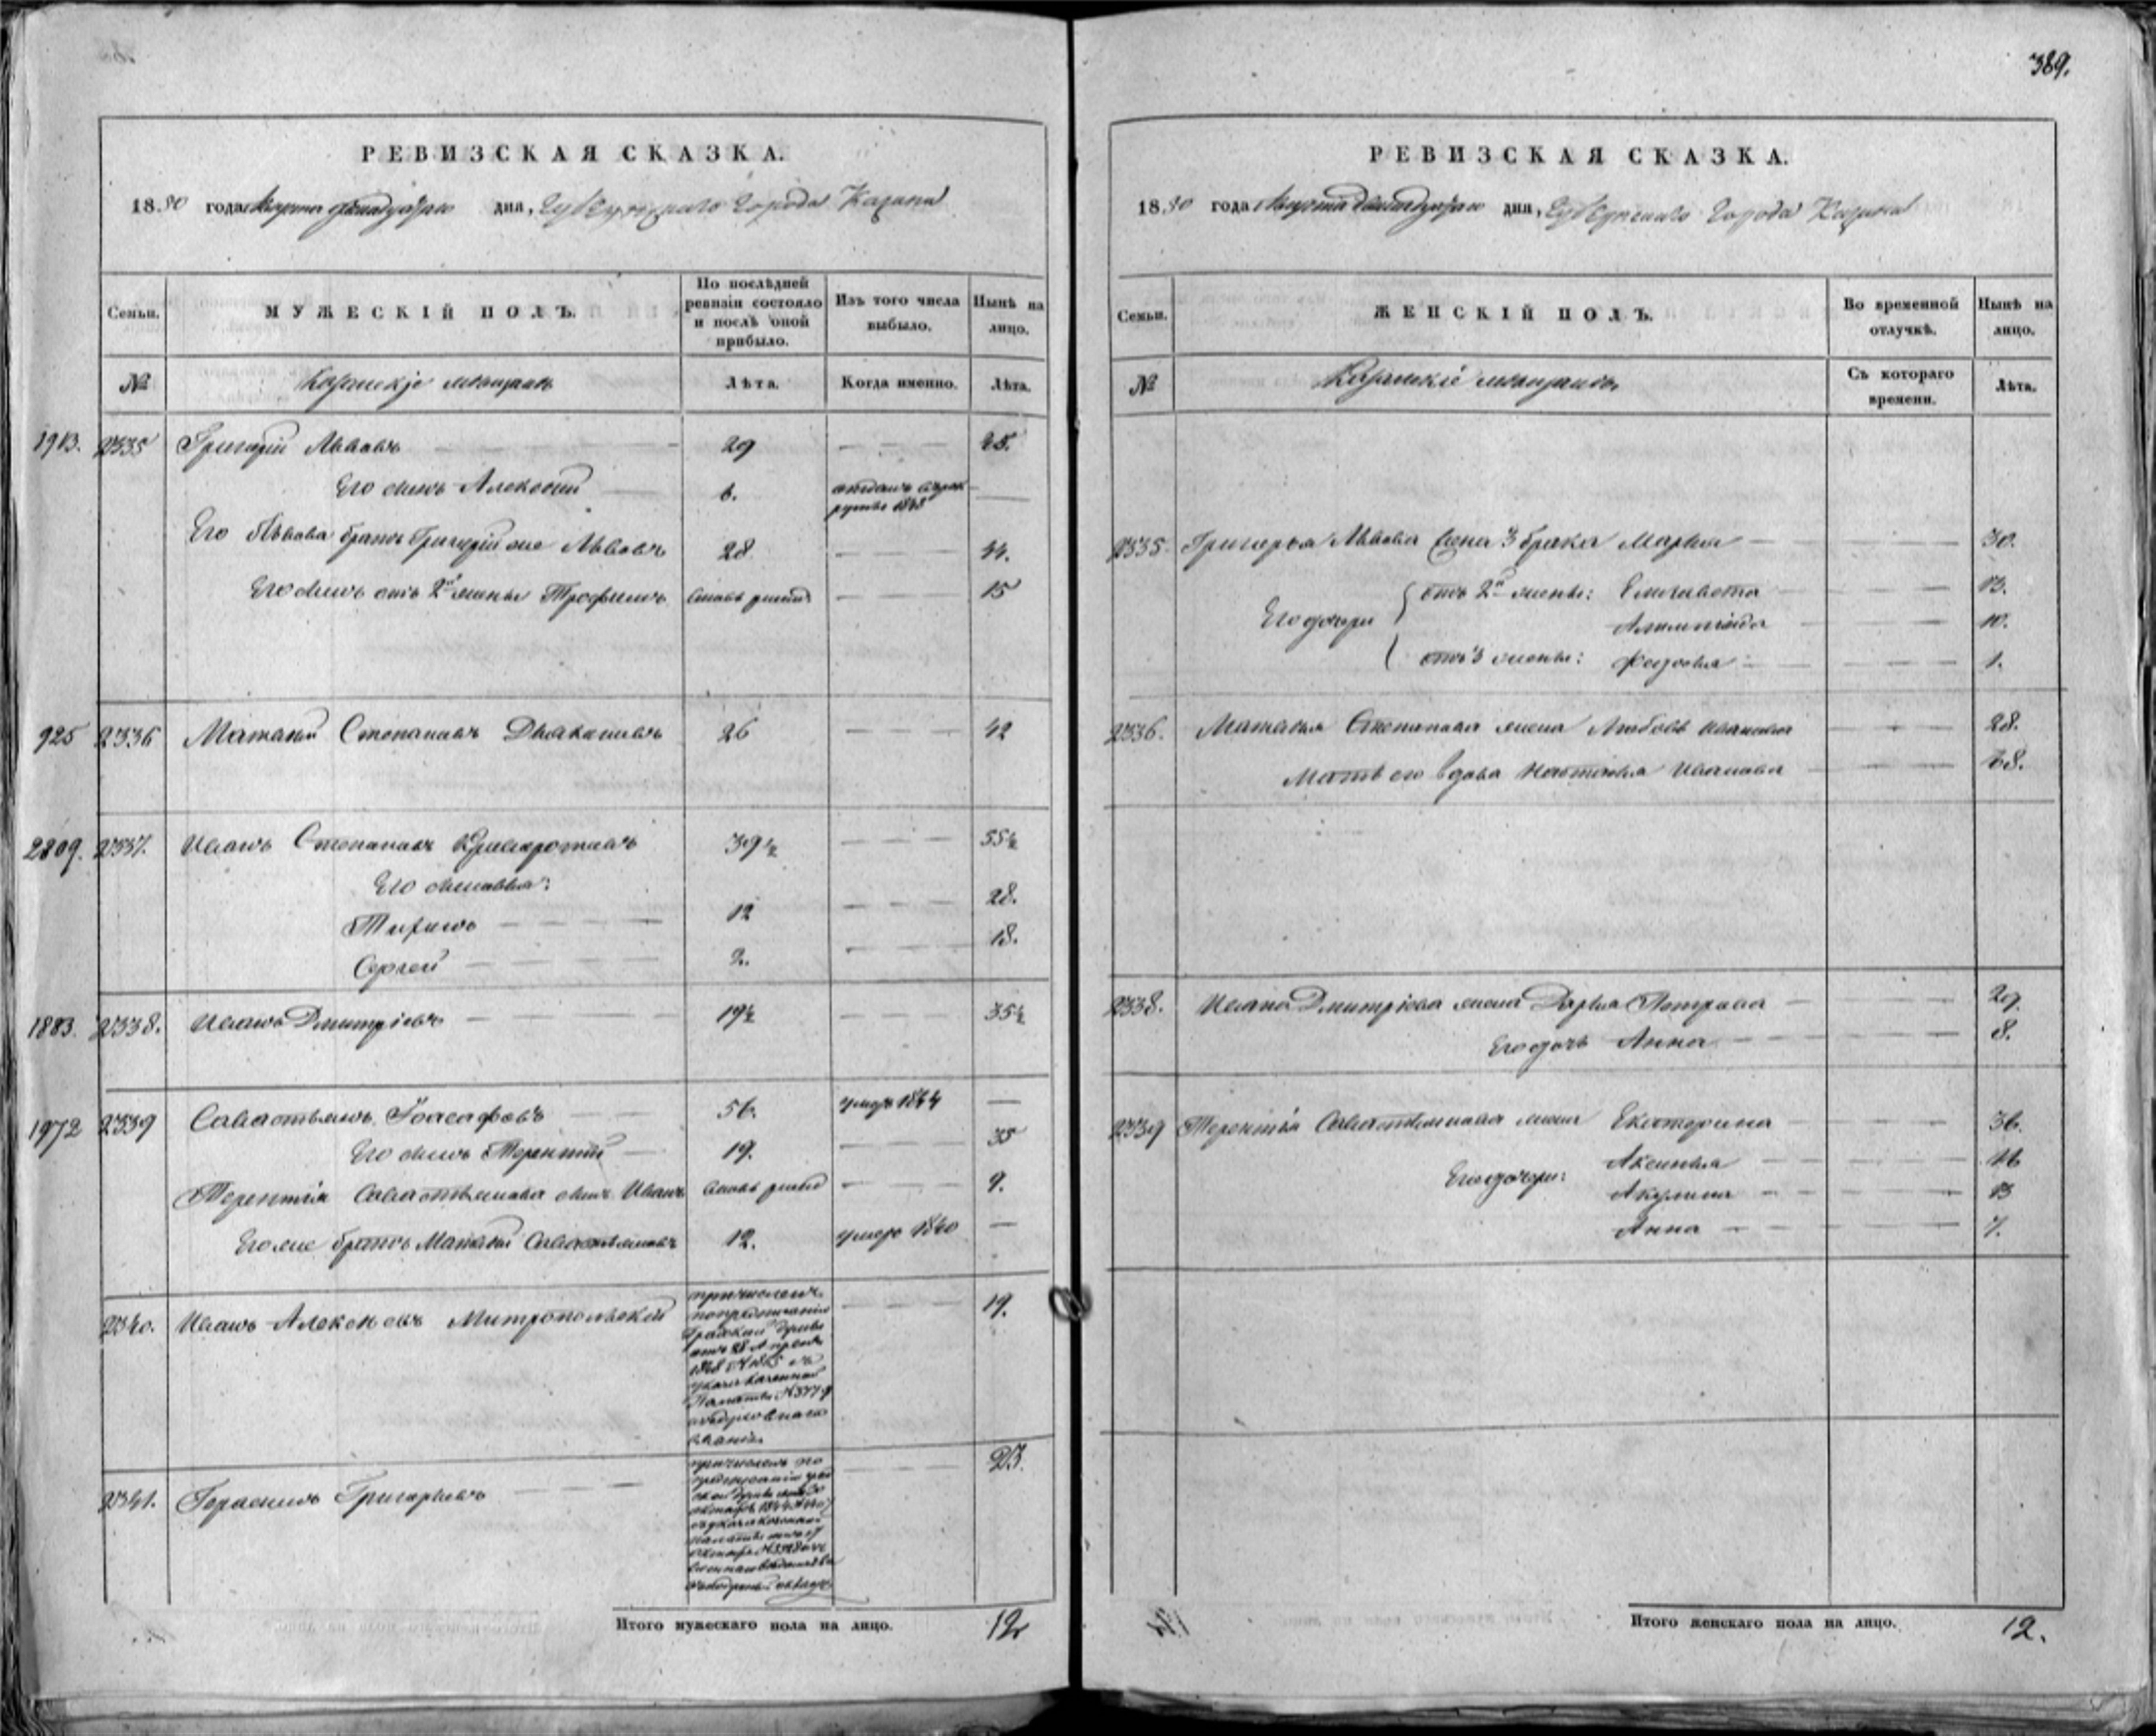 389.
РЕВИЗСКАЯ СКАЗКА.
1850 года Августа двенадцатаго дня, Губернскаго Города Казани
Семьи.
МУЖЕСКІЙ ПОЛЪ.
По послѣдней ревизіи состояло и послѣ оной прибыло.
Изъ того числа выбыло.
Нынѣ на лицо.
№
Казанскіе мѣщане
Лѣта.
Когда именно.
Лѣта.
1913. 2335 Григорій Львовъ 29 45.
Его сынъ Алексѣй 6. отданъ въ рекруты 1848
Его Львова братъ Григорій же Львовъ 28 44.
Его сынъ отъ 2й жены Трофимъ вновь рожд. 15
925 2336 Матвѣй Степановъ Дьяконовъ 26 42
2809. 2337. Иванъ Степановъ 39½ 55½
Его сыновья:
12 28.
Сергей 2. 18.
1883. 2338. Иванъ Дмитріевъ 19½ 35½
1972 2339 Савастьянъ Іоасафовъ 56. умеръ 1844
Его сынъ Терентій 19. 35
Терентія Савастьянова сынъ Иванъ вновь рожд. 9.
Его же братъ Матвѣй Савастьяновъ 12. умеръ 1840
2340. Иванъ Алексѣевъ Митропольской 19.
причисленъ
по предписанію
Градской Думы
отъ 28 Апреля
указа Казенной
Палаты № 3779
званія.
2341. Герасимъ Григорьевъ 23.
причисленъ по
предписанію
Итого мужескаго пола на лицо. 12
РЕВИЗСКАЯ СКАЗКА.
1850 года Августа двенадцатаго дня, Губернскаго Города Казани
Семьи.
ЖЕНСКІЙ ПОЛЪ.
Во временной отлучкѣ.
Нынѣ на лицо.
№
Казанскіе мѣщане
Съ котораго времени.
Лѣта.
2335. Григорья Львова жена 3 брака Марья 30.
Его дочери отъ 2й жены: Елизавета 13.
10.
отъ 3 жены: Федосья 1.
2336. Матвѣя Степанова жена Любовь Иванова 28.
Мать его вдова Настасья Иванова 68.
2338. Ивана Дмитріева жена Дарья Петрова 29.
Его дочь Анна 8.
2339 Терентія Савастьянова жена Екатерина 36.
Его дочери: Аксинья 16
Акулина 13
Анна 7.
Итого женскаго пола на лицо. 12.